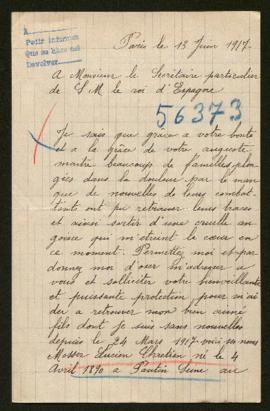 A
Pedir informes
Que se han
Devolver
Paris le 13 Juin 1917.
A Monsieur le Secrétaire particulier
de S M le roi d'Espagne
56373
Je sais que grâce a votre bonté
et a la grâce de votre auguste
maitre beaucoup de familles plon
gées dans la douleur par le man
que de nouvelles de leurs combat
tant ont pu retrouver leurs traces
et ainsi sortir d'une cruelle an
goisse qui m'étreint le cœur en
ce moment. Permettez moi et par
donnez moi d'oser m'adresser a
vous et solliciter votre bienveillante
et puissante protection pour m'ai
der a retrouver mon bien aimé
fils dont je suis sans nouvelles
depuis le 24 Mars 1917
Lucien Chretien né le 4
Avril 1890 a Pantin Seine au